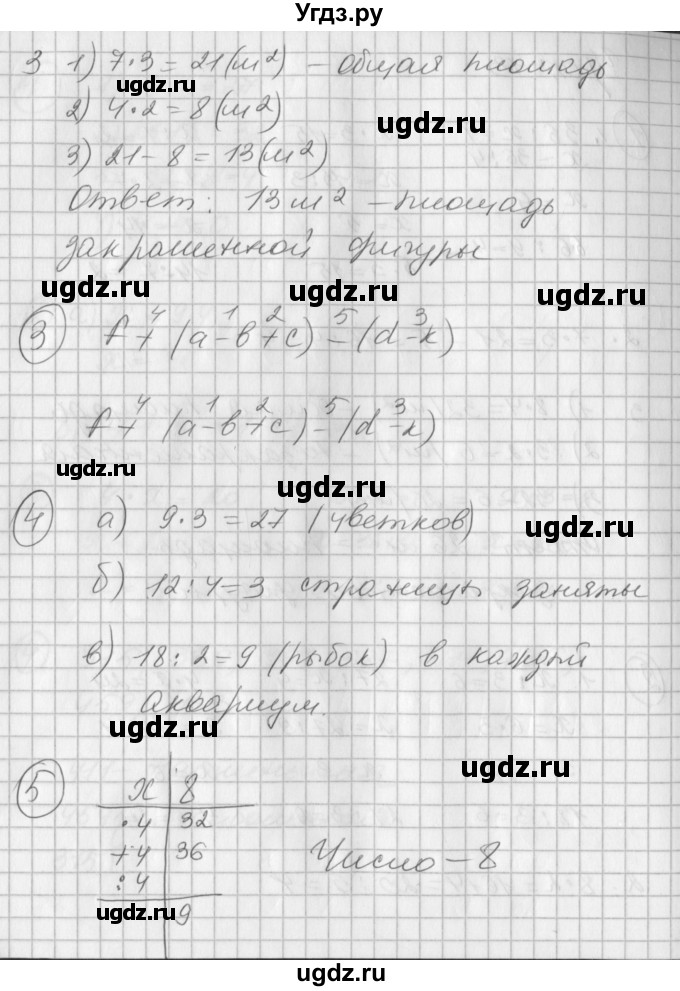 Угдз.ру
3 1) 7·3 = 21 (м²) – общая площадь
ugdz.ru
2) 4·2 = 8 (м²)
ugdz.ru
3) 21 – 8 = 13 (м²)
Ответ: 13 м² – площадь
закрашенной фигуры
ugdz.ru ugdz.ru ugdz.ru
4 1 2 5 3
③ f + (a – b + c) – (d – k)
4 1 2 5 3
f + (a – b + c) – (d – k)
ugdz.ru
ugdz.ru
④ а) 9·3 = 27 (цветков)
ugdz.ru
б) 12 : 4 = 3 страницы заняты
в) 18 : 2 = 9 (рыбок) в каждый
аквариум.
ugdz.ru
ugdz.ru
⑤ x | 8
·4 | 32
+4 | 36 Число – 8
:4
ugdz.ru 9
ugdz.ru
ugdz.ru